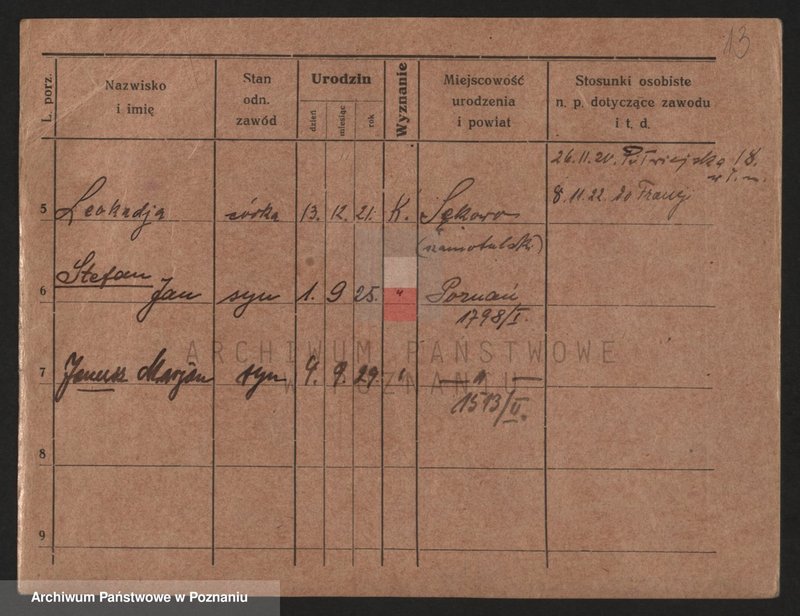 13
L. porz.
Nazwisko
i imię
Stan
odn.
zawód
Urodzin
dzień
miesiąc
rok
Wyznanie
Miejscowość
urodzenia
i powiat
Stosunki osobiste
n. p. dotyczące zawodu
i t. d.
26.11.20. Półwiejska 18.
8.11.22. do Francj
5 Leokadja córka 13. 12. 21. K. Sękowo
(szamotulski)
Stefan
6 Jan syn 1. 9 25. " Poznań
1798/I.
ARCHIWUM PAŃSTWOWE
W POZNANIU
7 Janusz Marjan syn 4. 9. 29. " — " —
1513/II.
8
9
Archiwum Państwowe w Poznaniu